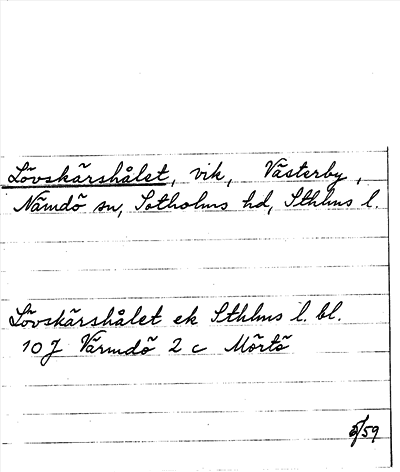 Lövskärshålet, vik, Västerby,
Nämdö sn, Sotholms hd, Sthlms l.
Lövskärshålet ek Sthlms l. bl.
10 J Värmdö 2 c Mörtö
5/59